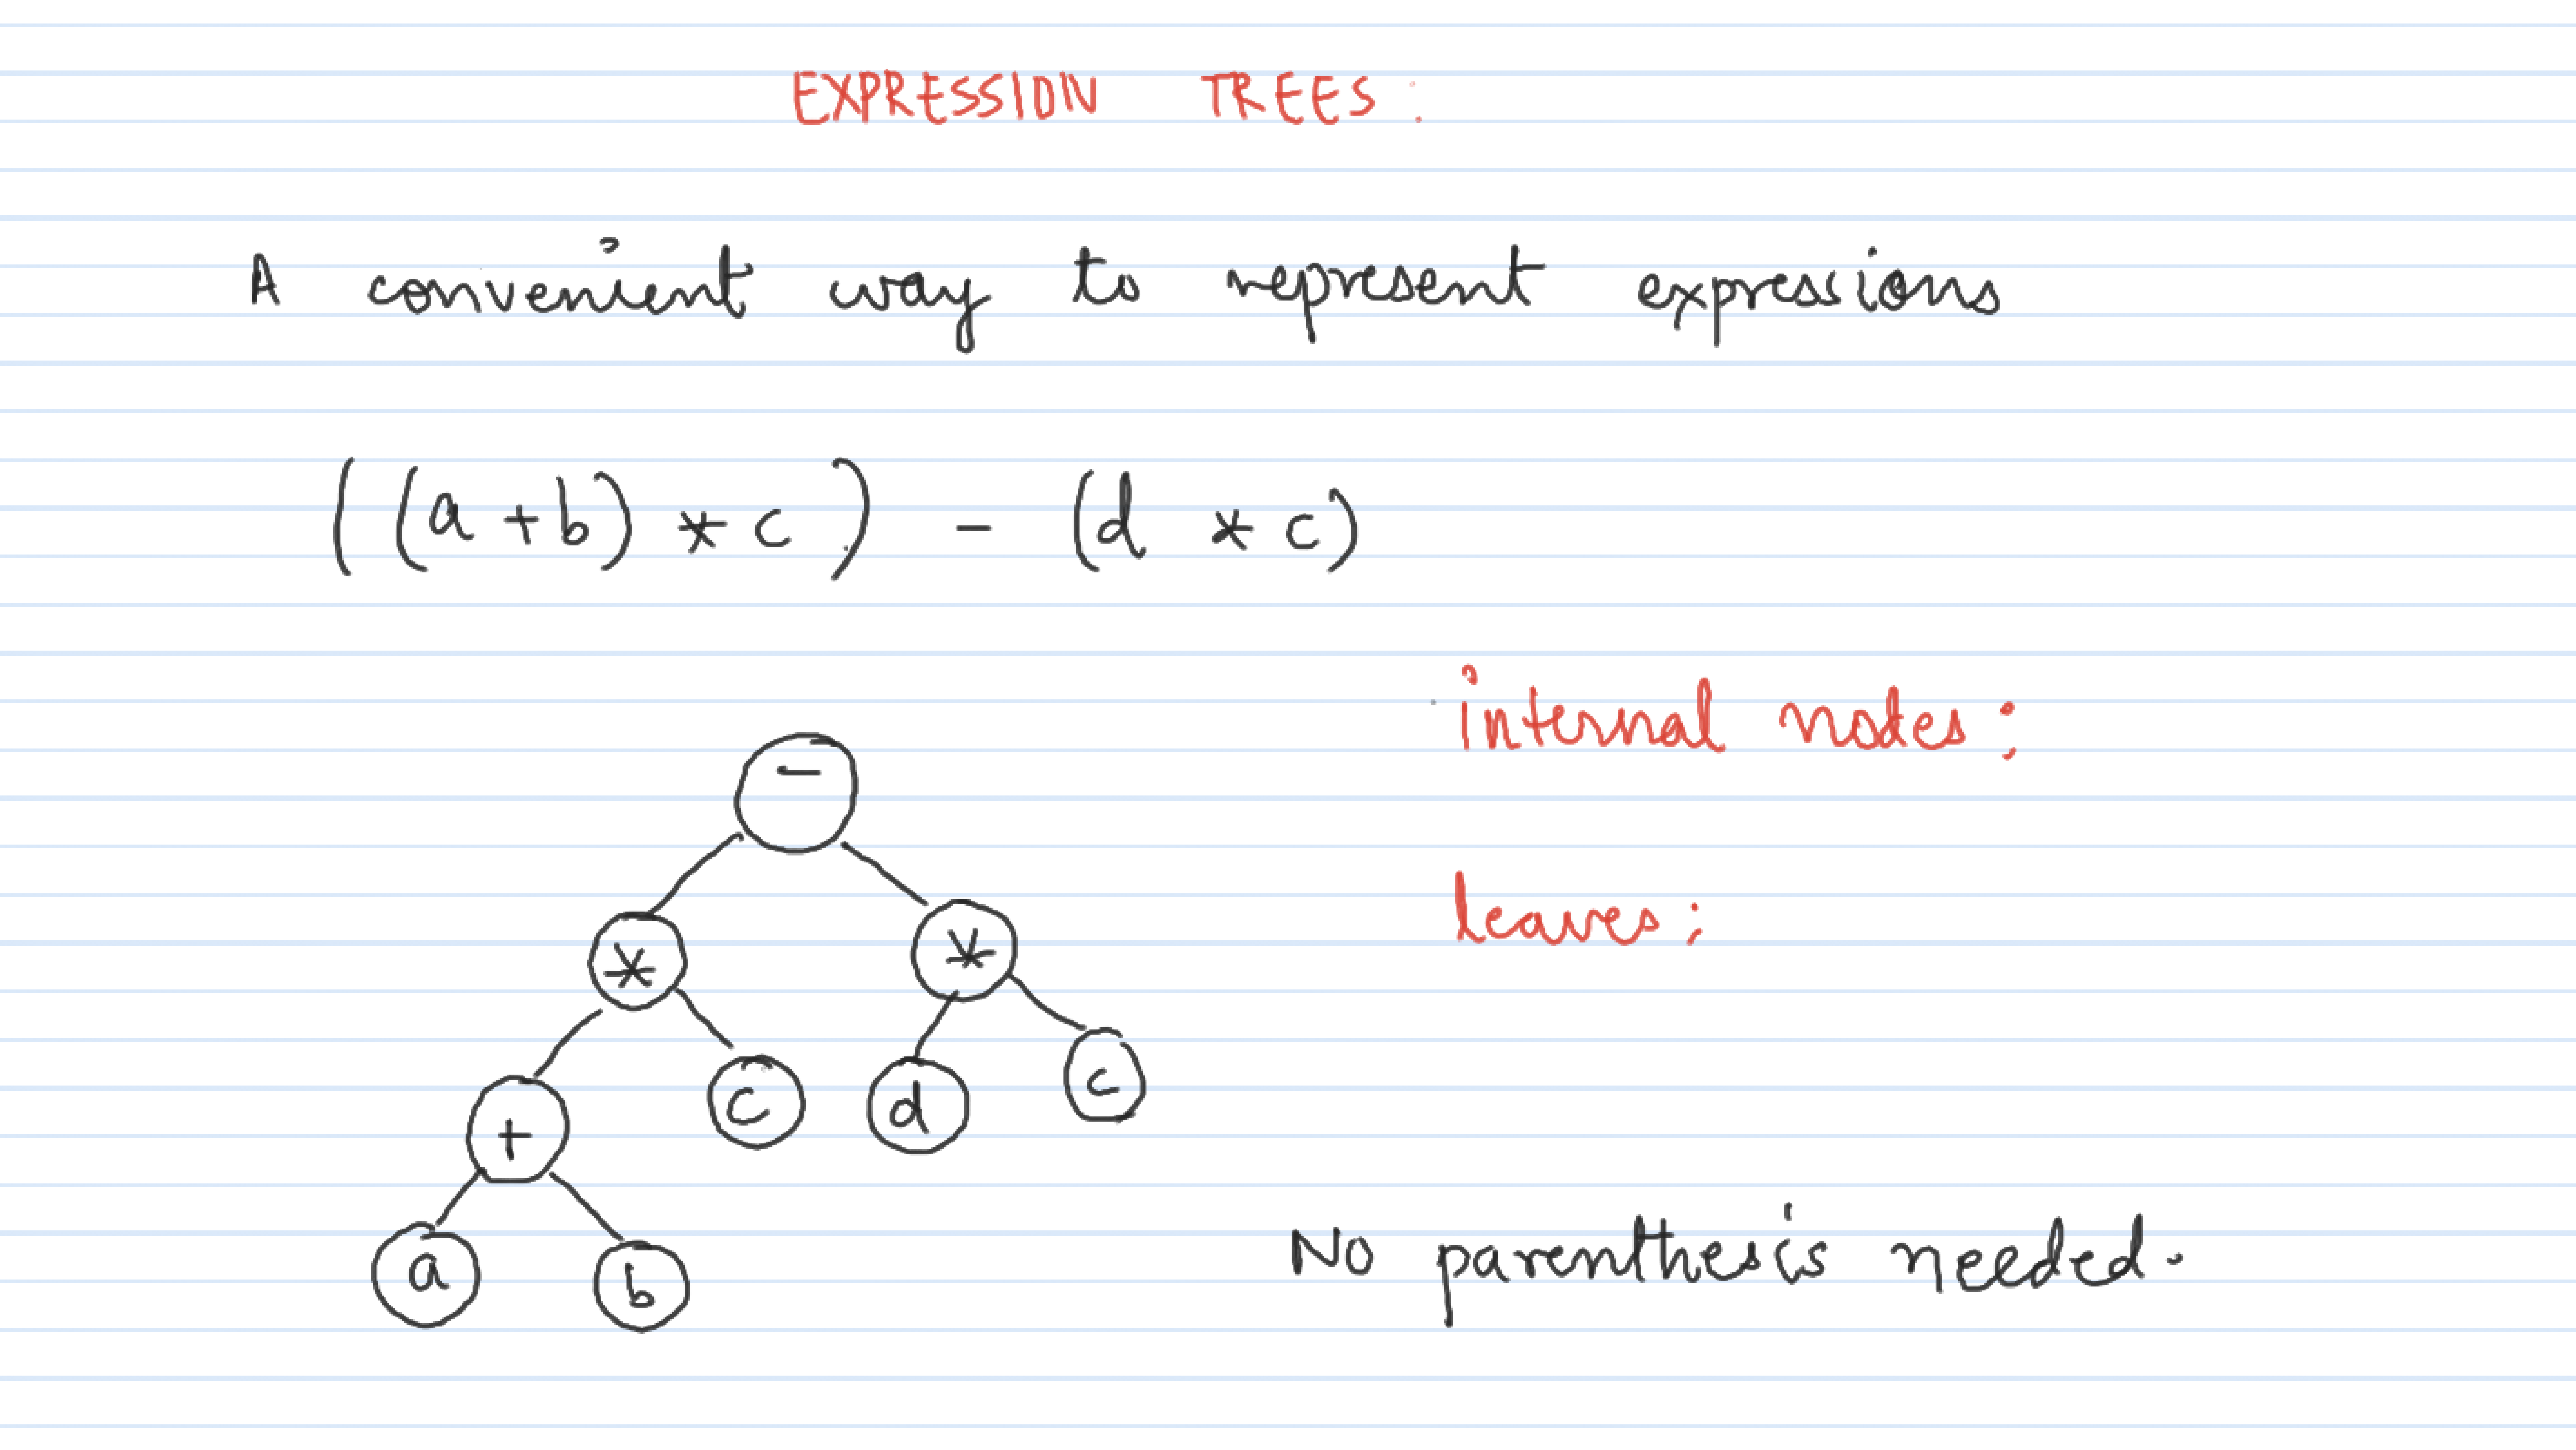 EXPRESSION TREES:
A convenient way to represent expressions
((a+b) * c) - (d * c)
internal nodes:
-
leaves:
* *
c d c
+
No parenthesis needed.
a b